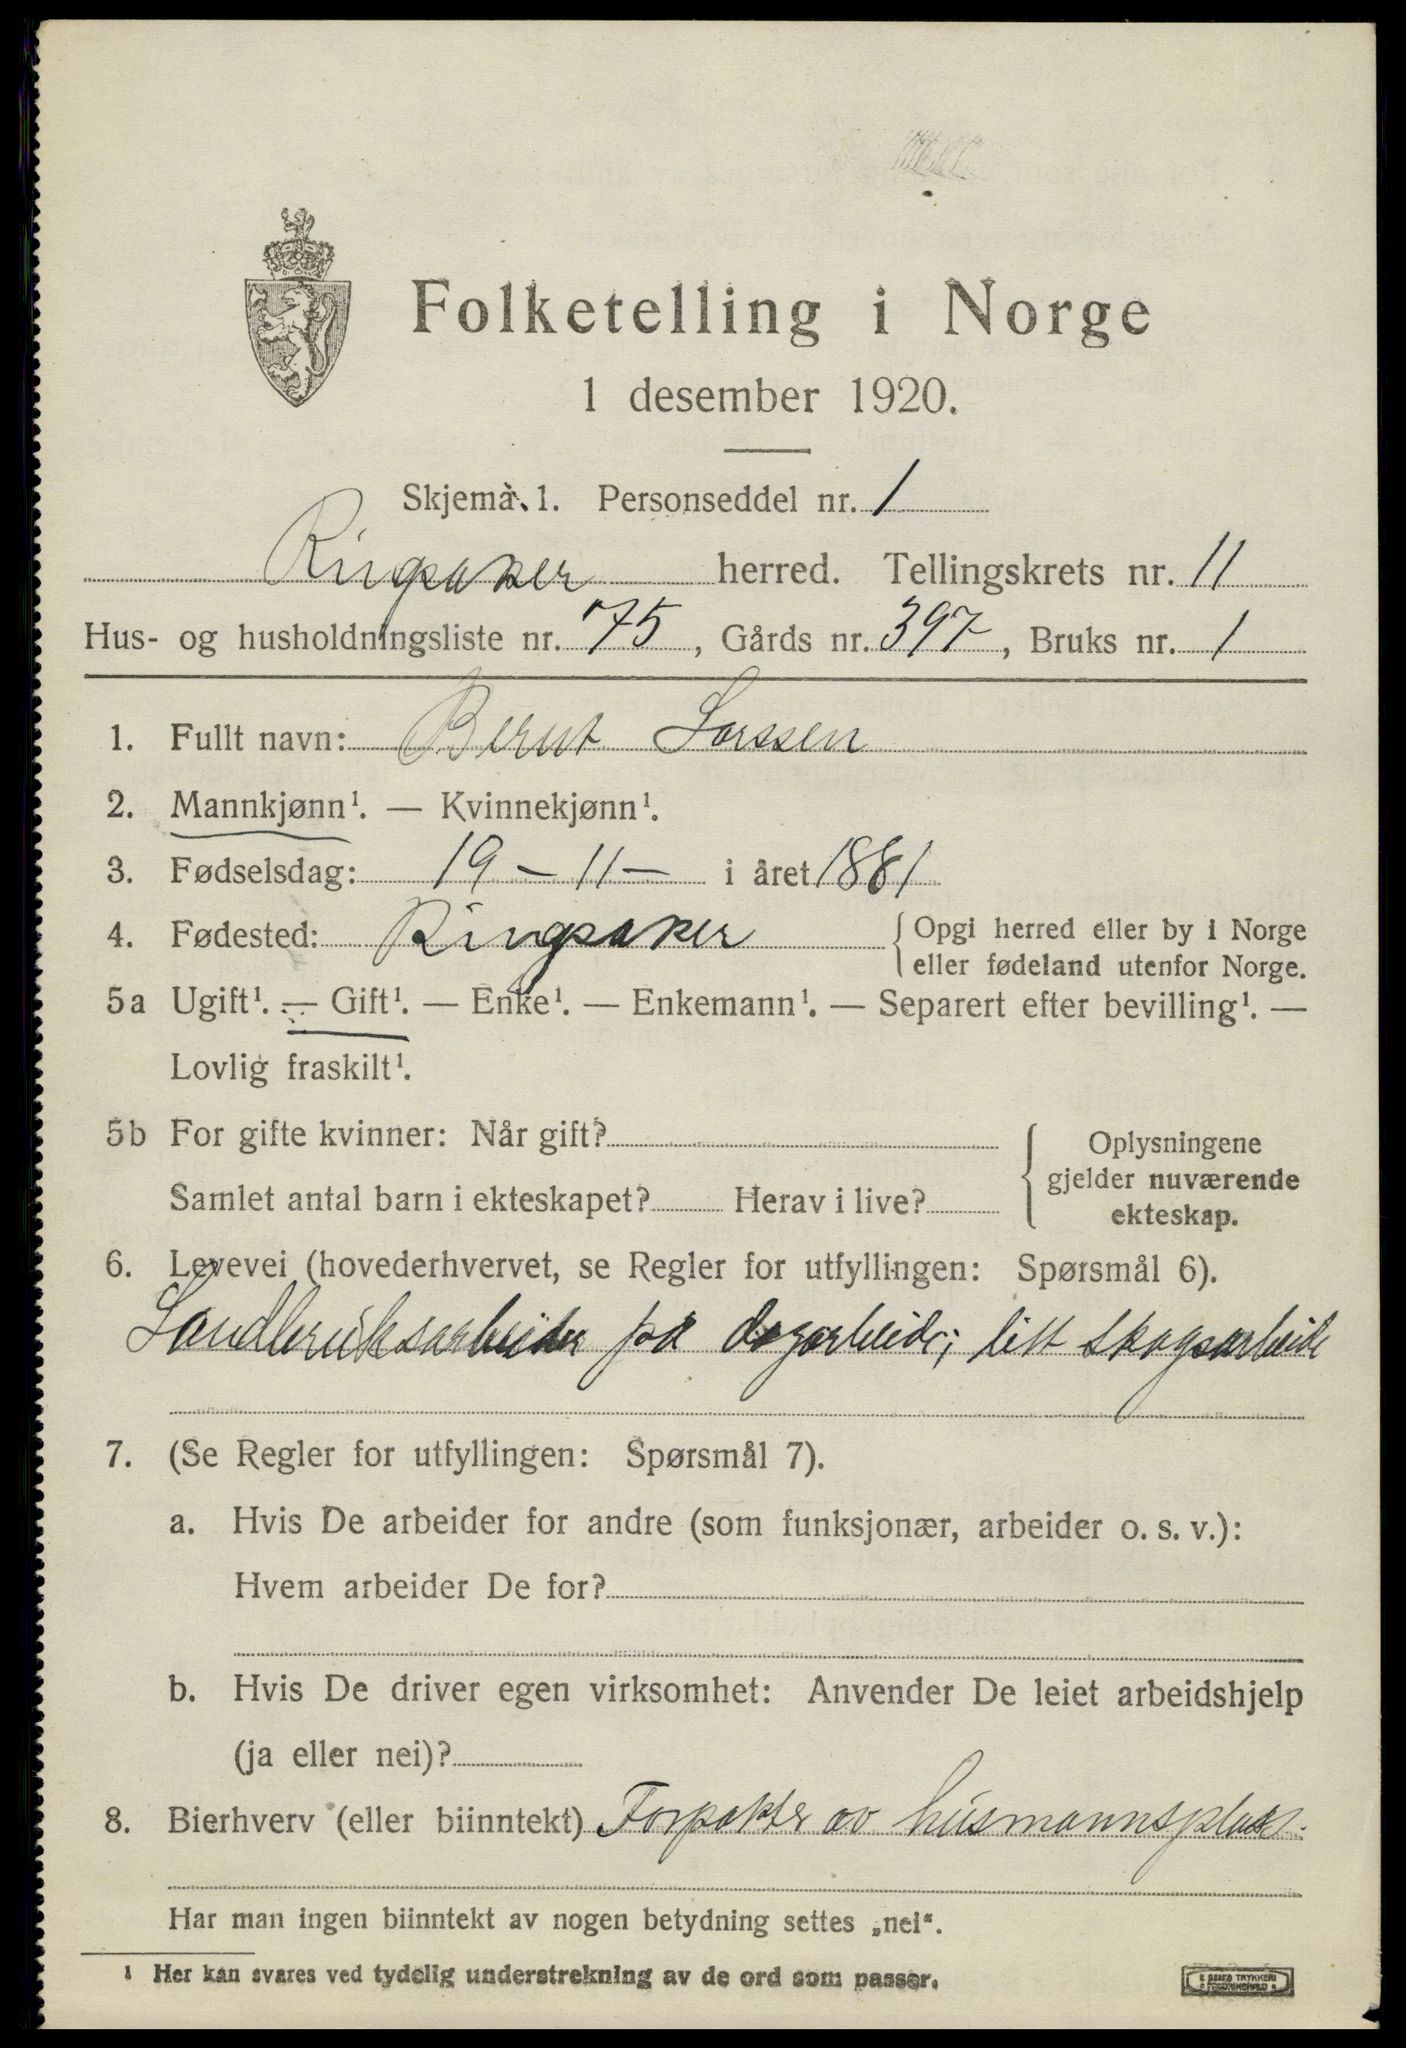 Folketelling i Norge
1 desember 1920.
Skjema 1. Personseddel nr. 1
Ringsaker herred. Tellingskrets nr. 11
Hus- og husholdningsliste nr. 75, Gårds nr. 397, Bruks nr. 1
1. Fullt navn: Bernt Larssen
2. Mannkjønn¹. — Kvinnekjønn¹.
3. Fødselsdag: 19 - 11 - i året 1881
4. Fødested: Ringsaker { Opgi herred eller by i Norge
eller fødeland utenfor Norge.
5a Ugift¹. — Gift¹. — Enke¹. — Enkemann¹. — Separert efter bevilling¹. —
Lovlig fraskilt¹.
5b For gifte kvinner: Når gift?
Samlet antal barn i ekteskapet? Herav i live?
{ Oplysningene
gjelder nuværende
ekteskap.
6. Levevei (hovederhvervet, se Regler for utfyllingen: Spørsmål 6).
Landbruksarbeider på dagarbeide; litt skogsarbeide
7. (Se Regler for utfyllingen: Spørsmål 7).
a. Hvis De arbeider for andre (som funksjonær, arbeider o. s. v.):
Hvem arbeider De for?
b. Hvis De driver egen virksomhet: Anvender De leiet arbeidshjelp
(ja eller nei)?
8. Bierhverv (eller biinntekt) Forpakter av husmannsplass.
Har man ingen biinntekt av nogen betydning settes „nei“.
¹ Her kan svares ved tydelig understrekning av de ord som passer.